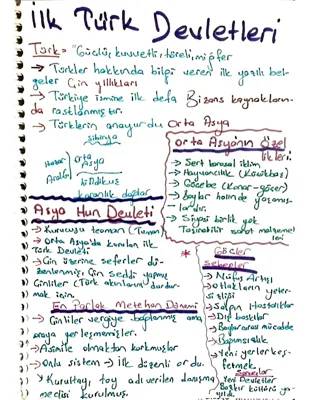 İlk Türk Devletleri
Türk = "Güçlü, kuvvetli, töreli, miğfer
→ Türkler hakkında bilgi veren ilk yazılı bel-
geler Çin yıllıkları
→ Türkiye ismine ilk defa Bizans kaynakların-
da rastlanmıştır.
→ Türklerin anayurdu Orta Asya
Sibirya
Hazar
Orta Asya
Aral Gölü
Hindikuş
karanlık dağlar
Orta Asya'nın Özel
likleri:
→ Sert karasal iklim
→ Hayvancılık
→ Göçebe (Konar-göçer)
→ Boylar halinde yaşamış-
lardır.
→ Siyasi birlik yok
Taşınabilir sanat malzemel
leri
Asya Hun Devleti
→ Kurucusu Teoman (Tuman)
→ Orta Asya'da kurulan ilk
Türk Devleti
→ Çin üzerine seferler dü-
zenlenmiş Çin Seddi yapmış
Çinliler (Türk akınlarını durdur-
mak için.
En Parlak Metehan Dönemi
→ Çinliler vergiye bağlanmış ama
oraya yerleşmemişler.
→ Asimile olmaktan korkmuşlar
→ Onlu sistem → ilk düzenli ordu.
→ Kurultay, toy adı verilen danışma
meclisi kurulmuş.
* Göçler
Sebepler
→ Nüfus Artışı
→ otlakların yeter-
sizliği
→ Salgın Hastalıklar
→ Dış baskılar
→ Boylar arası mücadele
→ Bağımsızlık
→ Yeni yerler keş-
fetmek
Sonuçlar
Yeni Devletler